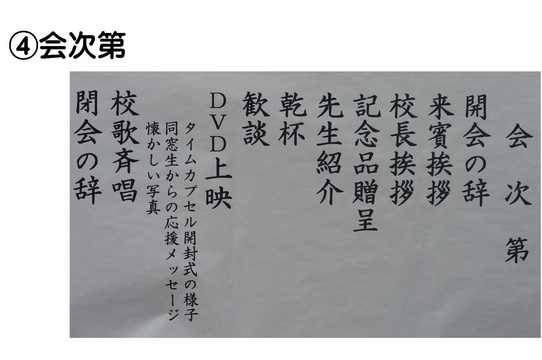 ④会次第
会次第
開会の辞
来賓挨拶
校長挨拶
記念品贈呈
先生紹介
乾杯
歓談
DVD上映
タイムカプセル開封式の様子
同窓生からの応援メッセージ
懐かしい写真
校歌斉唱
閉会の辞